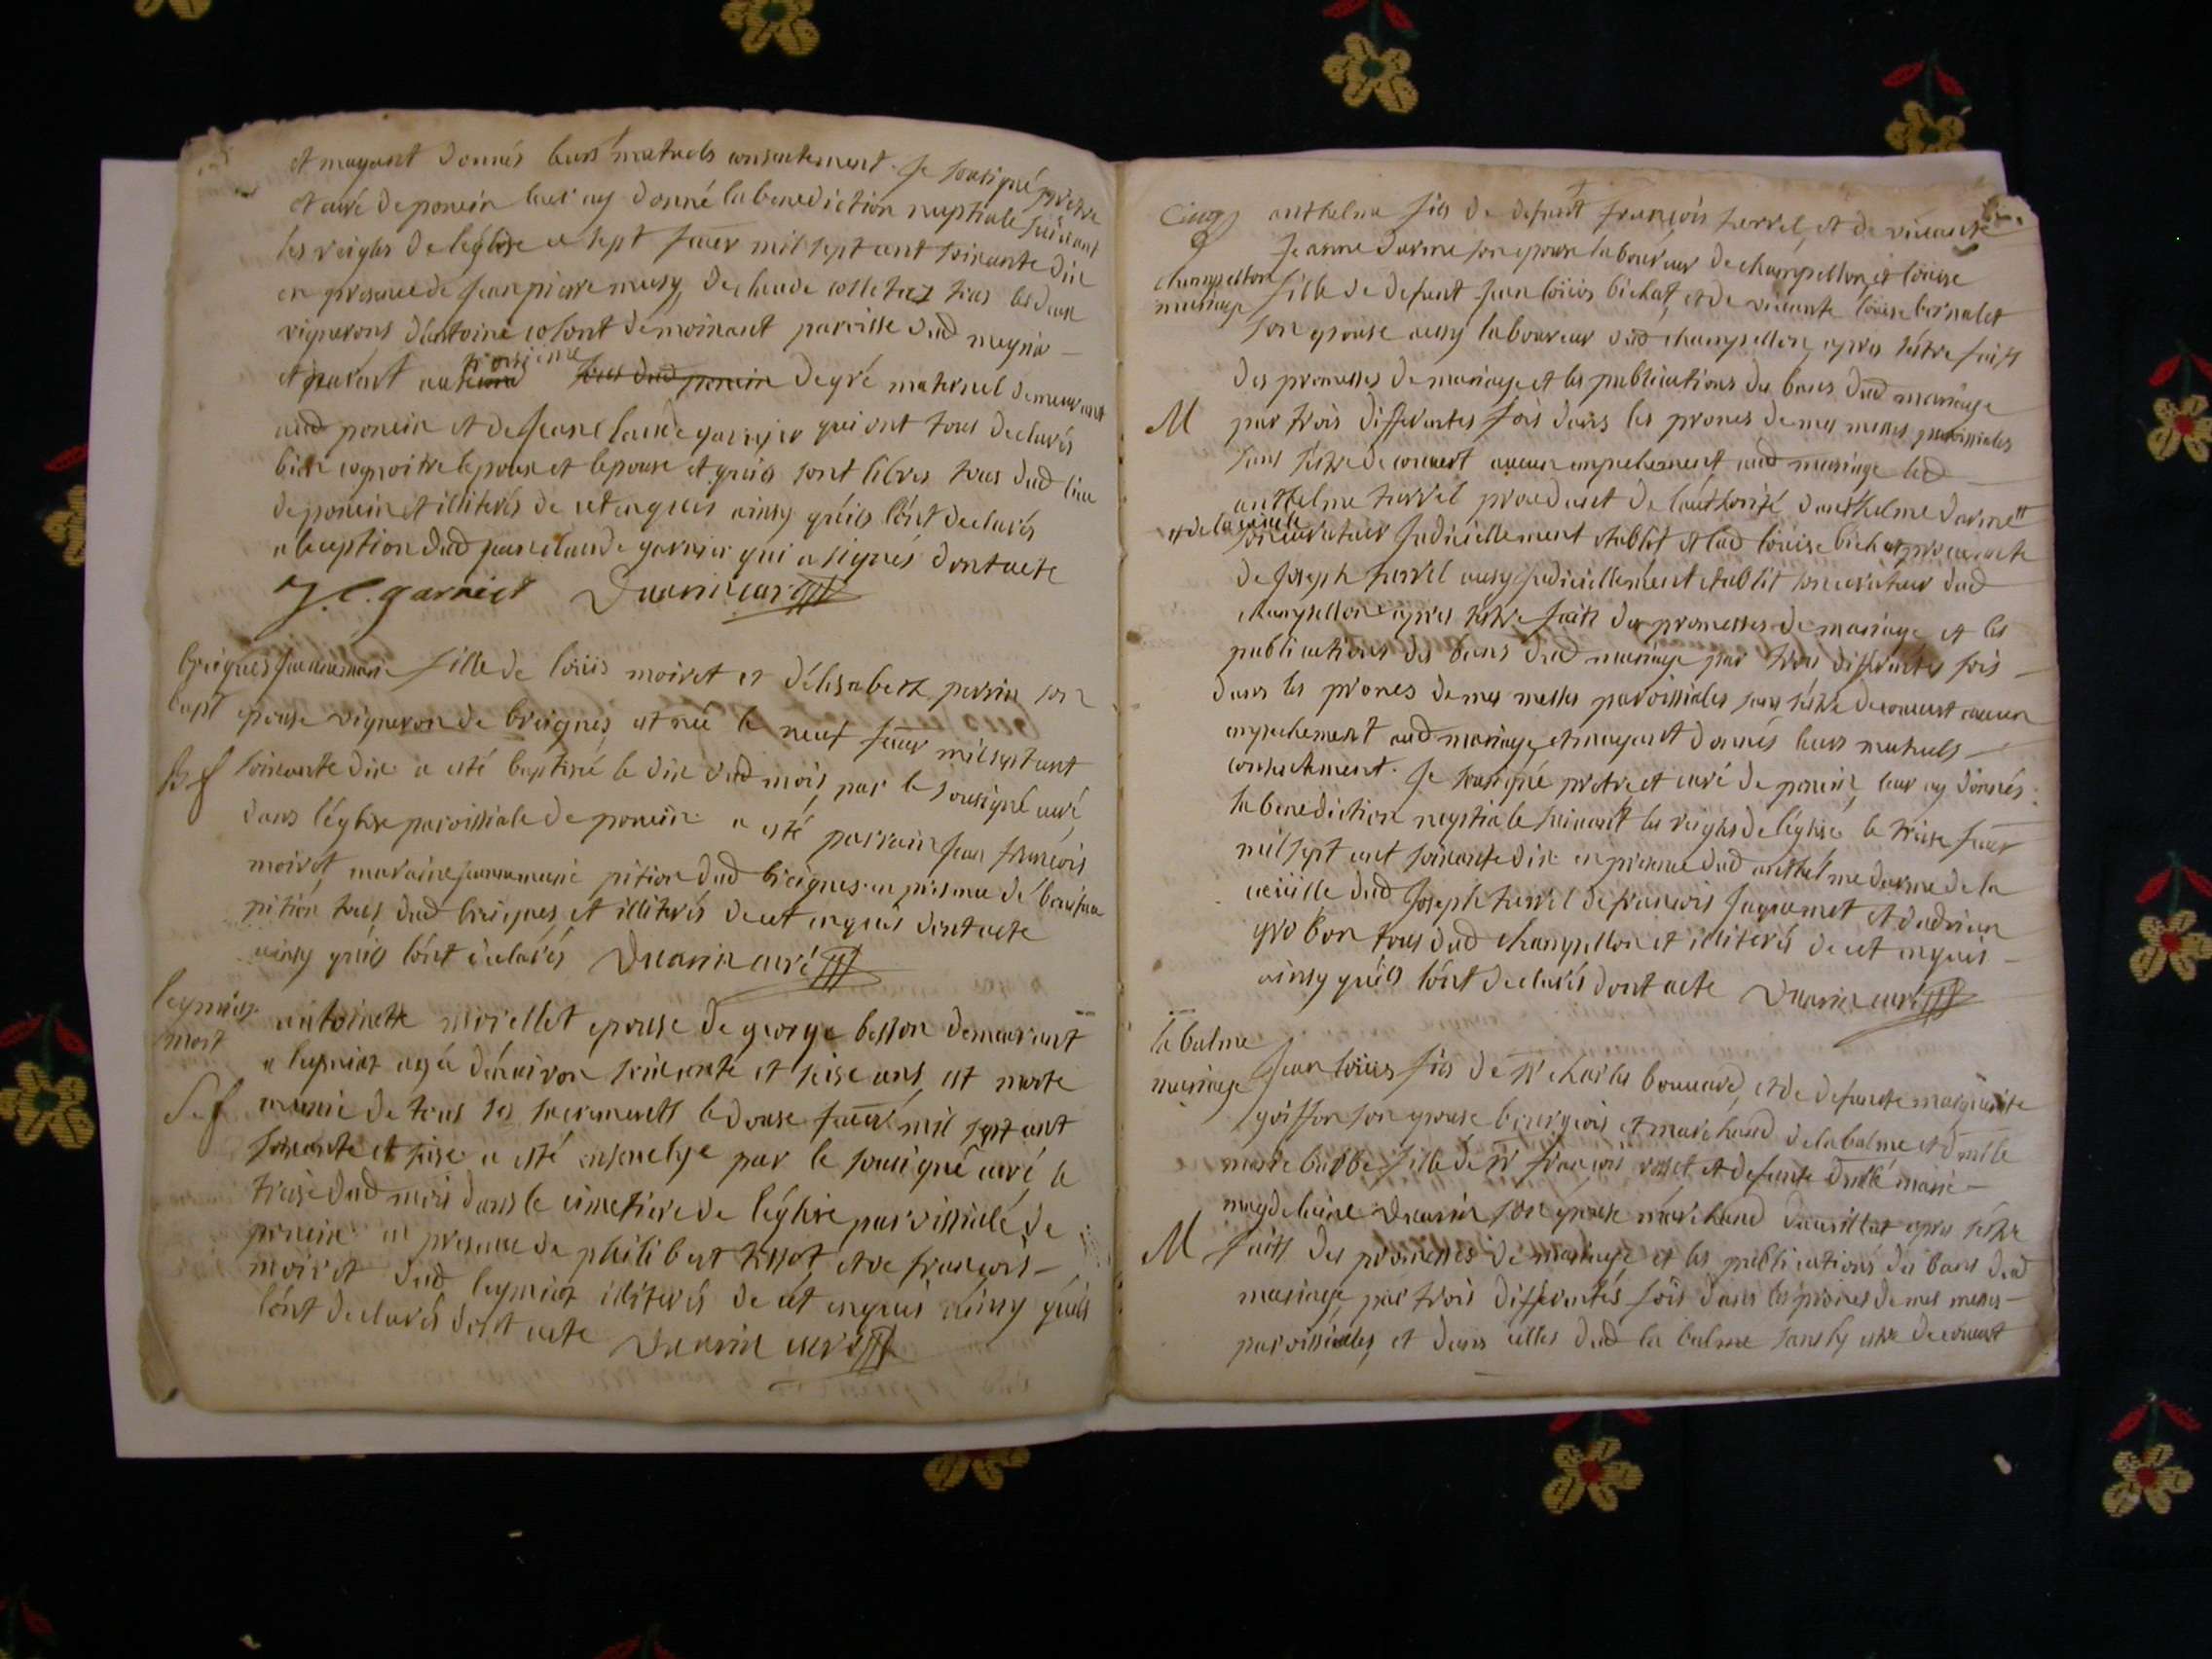 et mayant donnés leurs mutuels consentement. Je sousigné pretre
et curé de poncin leur ay donné la benediction nuptiale suivant
les reigles de leglise ce sept janvr mil sept cent soixante dix
en presence de jean pierre musy, de claude tous les deux
vignerons dantoine demoinant paroisse dud
et parent au troisieme degré maternel demeurant
aud poncin et de jean claude garnier qui ont tous declarés
bien cognoitre lepoux et lepouse et quils sont libres tous dud lieu
de poncin et illiterés de cet enquis ainsy quils lont declarés
a leception dud jean claude garnier qui a signés dont acte
J. C. garnier Duarin curé
breignes jeanne marie fille de loüis moiret et délisabeth perrin son
bapt epouse vigneron de breignes est née le neuf janvr mil sept cent
soixante dix a esté baptisée le dix dud mois par le sousigné curé
dans léglise paroissiale de poncin a esté parrain jean françois
moiret, maraine jeanne marie pition dud breignes en presence de
pition tous dud breignes et illiterés de cet enquis dont acte
ainsy quils lónt déclarés Duarin curé
leymiaz antoinette moirellet epouse de george besson demeurant
mort a leymiaz agée dénviron soixante et seise ans est morte
munie de tous ses sacrements le douse janvr mil sept cent
soixante et seise a esté ensevelye par le sousigné curé le
treise dud mois dans le cimetiere de léglise paroissiale de
poncin en presence de philibert tissot et de françois
moiret dud leymiaz illiterés de cet enquis ainsy quils
lónt declarés dont acte Duarin curé
Cinq
anthelme fils de defunt françois turrel, et de vivante
jeanne darme son epouse laboureur de champellon, et loüise
champellon fille de defunt jean loüis bichat, et de vivante loüise
mariage son epouse aussy laboureur dud champellon, apres sestre faits
des promesses de mariage et les publications des bans dud mariage
M par trois differentes fois dans les prones de mes messes paroissiales
sans sestre decouvert aucun empechement aud mariage led
anthelme turrel procedant de lauthorité danthelme darmett
et de la cueille son curateur judiciellement etablit et lad loüise bichat procedante
de joseph turrel aussy judiciellement etablit son curateur dud
champellon apres sestre faits des promesses de mariage et les
publications des bans dud mariage par trois differentes fois
dans les prones de mes messes paroissiales sans sestre decouvert aucun
empechement aud mariage, et mayant donnés leurs mutuels
consentement. Je sousigné pretre et curé de poncin, leur ay donnés
la benediction nuptiale suivant les reigles de léglise le treise janvr
mil sept cent soixante dix en presence dud anthelme darme de la
cueille dud joseph turrel de françois et dadrien
grobon tous dud champellon et illiterés de cet enquis
ainsy quils lónt declarés dont acte Duarin curé
la balme
mariage jean loüis fils de sr charles bouvard, et de defunte marguerite
goiffon son epouse bourgeois et marchand de la balme et dmlle
marie barbe fille de sr françois rosset et defunte dmlle marie
magdeleine Duarin son epouse marchand apres sestre
M faits des promesses de mariage et les publications des bans dud
mariage par trois differentes fois dans les prones de mes messes
paroissiales, et dans celles dud la balme sans sy estre decouvert